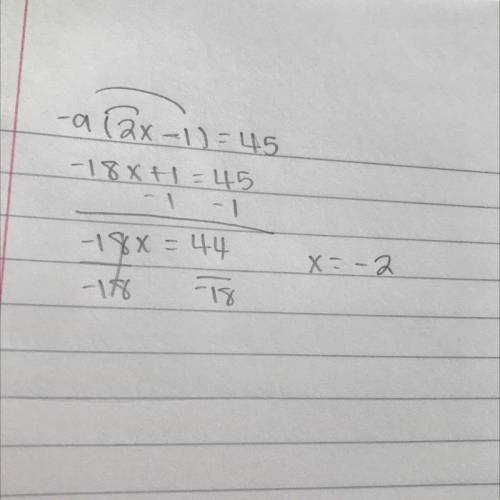 -9(2x-1)=45
-18x+1=45
-1 -1
-18x = 44 x=-2
-18 -18